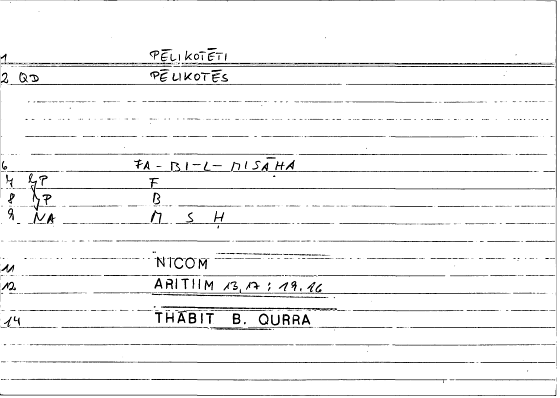 1 PĒLIKOTĒTI
2 QD PĒLIKOTĒS
6 FA-BI-L-MISĀḤA
7 GP F
8 GP B
9 NA M S Ḥ
11 NICOM
12 ARITIIM 13,17 : 19.16
14 THABIT B. QURRA